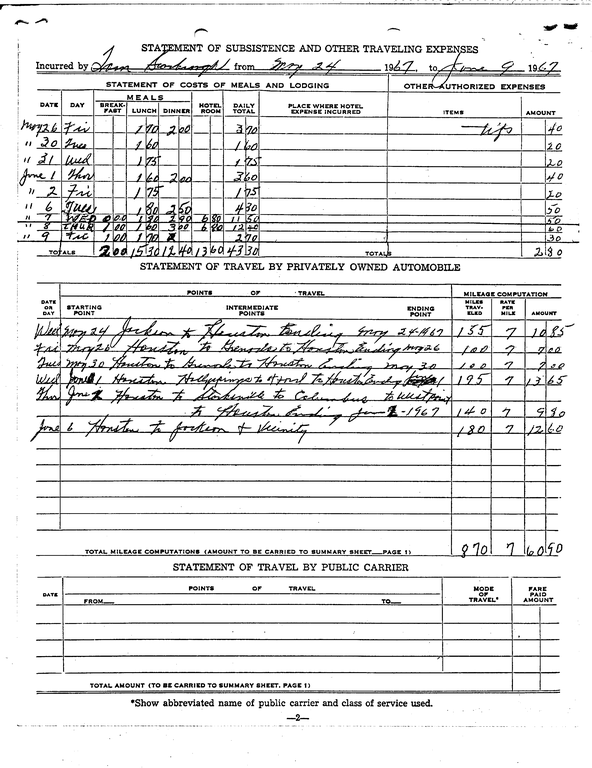 STATEMENT OF SUBSISTENCE AND OTHER TRAVELING EXPENSES
Incurred by Tom Scarbrough from May 24 1967, to June 9 1967
STATEMENT OF COSTS OF MEALS AND LODGING OTHER AUTHORIZED EXPENSES
MEALS
DATE DAY BREAK-FAST LUNCH DINNER HOTEL ROOM DAILY TOTAL PLACE WHERE HOTEL EXPENSE INCURRED ITEMS AMOUNT
May 26 Fri 1 70 2 00 3 70 tips 40
" 30 Tues 1 60 1 60 20
" 31 Wed 1 75 1 75 20
June 1 Thur 1 60 2 00 3 60 40
" 2 Fri 1 75 1 75 20
" 6 Tues 1 80 2 50 4 30 50
" 7 WED 0 00 1 80 2 90 6 80 11 50 50
" 8 THUR 1 00 1 60 3 00 6 80 12 40 60
" 9 Fri 1 00 1 70 2 70 30
TOTALS 2 00 15 30 12 40 13 60 43 30 TOTALS 2 80
STATEMENT OF TRAVEL BY PRIVATELY OWNED AUTOMOBILE
POINTS OF TRAVEL MILEAGE COMPUTATION
DATE OR DAY STARTING POINT INTERMEDIATE POINTS ENDING POINT MILES TRAV-ELED RATE PER MILE AMOUNT
Wed May 24 Jackson to Houston Ending May 24-1967 155 7 10 85
Fri May 26 Houston to Grenada to Houston Ending May 26 100 7 7 00
Tues May 30 Houston to Grenada to Houston Ending May 30 100 7 7 00
Wed 1 Houston Holly Springs to Oxford to Houston Ending 1 195 7 13 65
Thur June Houston to Starkville to Columbus to West Point
to Houston Ending June -1967 140 7 9 80
June 6 Houston to Jackson & Vicinity 180 7 12 60
TOTAL MILEAGE COMPUTATIONS (AMOUNT TO BE CARRIED TO SUMMARY SHEET—PAGE 1) 870 7 60 90
STATEMENT OF TRAVEL BY PUBLIC CARRIER
DATE POINTS OF TRAVEL MODE OF TRAVEL* FARE PAID AMOUNT
FROM— TO—
TOTAL AMOUNT (TO BE CARRIED TO SUMMARY SHEET. PAGE 1)
*Show abbreviated name of public carrier and class of service used.
—2—